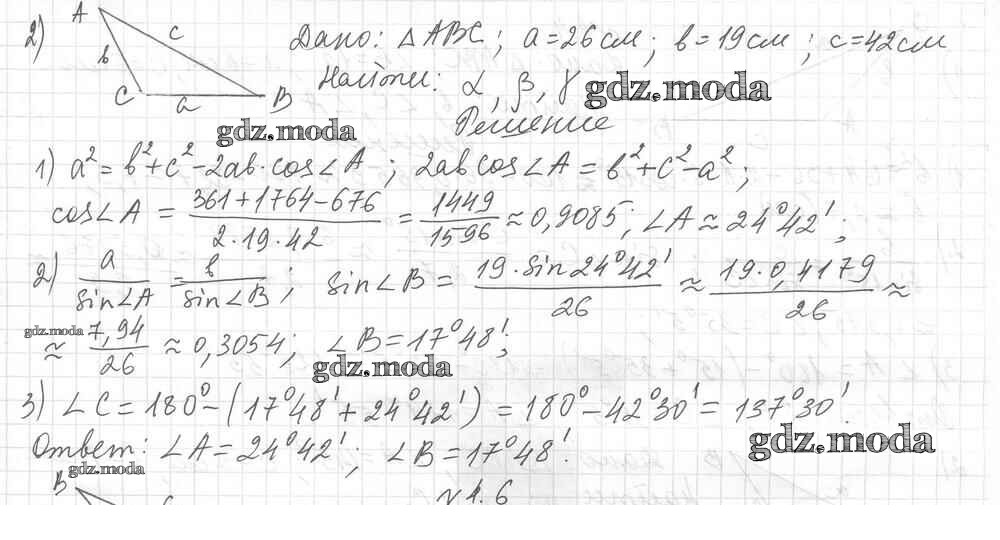 2) A c b C a B Дано: △ABC; a=26см; b=19см; c=42см
Найти: α, β, γ gdz.moda
gdz.moda Решение
1) a² = b²+c²-2ab·cos∠A; 2ab cos∠A = b²+c²-a²;
cos∠A = (361+1764-676)/(2·19·42) = 1449/1596 ≈ 0,9085; ∠A ≈ 24°42';
2) a/sin∠A = b/sin∠B; sin∠B = (19·sin24°42')/26 ≈ (19·0,4179)/26 ≈
gdz.moda ≈ 7,94/26 ≈ 0,3054; ∠B=17°48';
gdz.moda
3) ∠C = 180°-(17°48'+24°42') = 180°-42°30' = 137°30'.
Ответ: ∠A=24°42'; ∠B=17°48'. gdz.moda
gdz.moda
B c